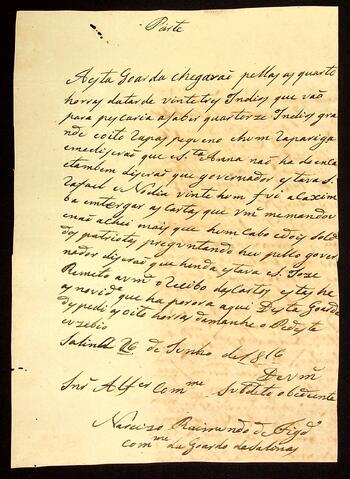 Parte
Aesta Goarda chegarão pellas as quarto
horas datarde vintetres Indios que vão
para pescaria asaber quatorze Indios gra
nde eoito Rapas pequeno ehum Rapariga
emediserão que S.ta Anna não ha de enta
etambem diserão que governador estava S.
Rafael e Nodia vinte hum fui a
ba entergar as cartas que vm memandou
enão achei mais que hum Cabo edois Sold
dos patriotas preguntando heu pello gover
nador diserão que hinda estava S. Joze
Remeto avm o Recibo das Cartas esta he
a novid.e que ha por ora aqui Desta Goarda
despedi as oito horas damanhe o Pedeste
euzebio
Salina 26 de Junho de 1816
De vm
Snr Alfer Com.me Subdito obediente
Narcizo Raimundo de Figd.o
Com.me da Goarda da Salinas